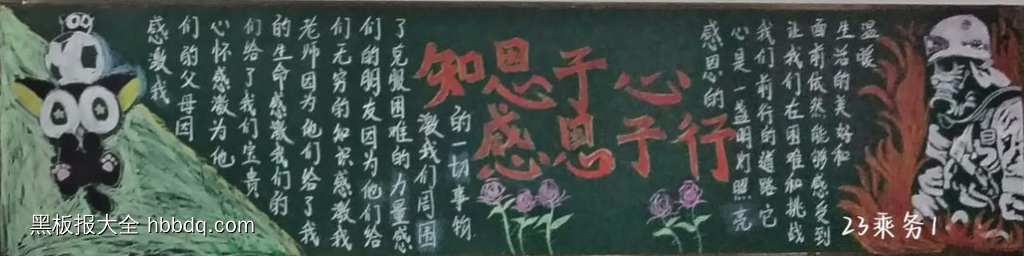 知恩于心
感恩于行
感激我
们的父母因
心怀感激为他
们给了我们宝贵的
的生命感激我们的
老师因为他们给了我
们无穷的知识感激我
们的朋友因为他们给
了克服困难的力量感
激我们周围
的一切事物
感恩的
心是一盏明灯照亮
我们前行的道路它
让我们在困难和挑战
面前依然能够感受到
生活的美好和
温暖
23乘务1
黑板报大全 hbbdq.com